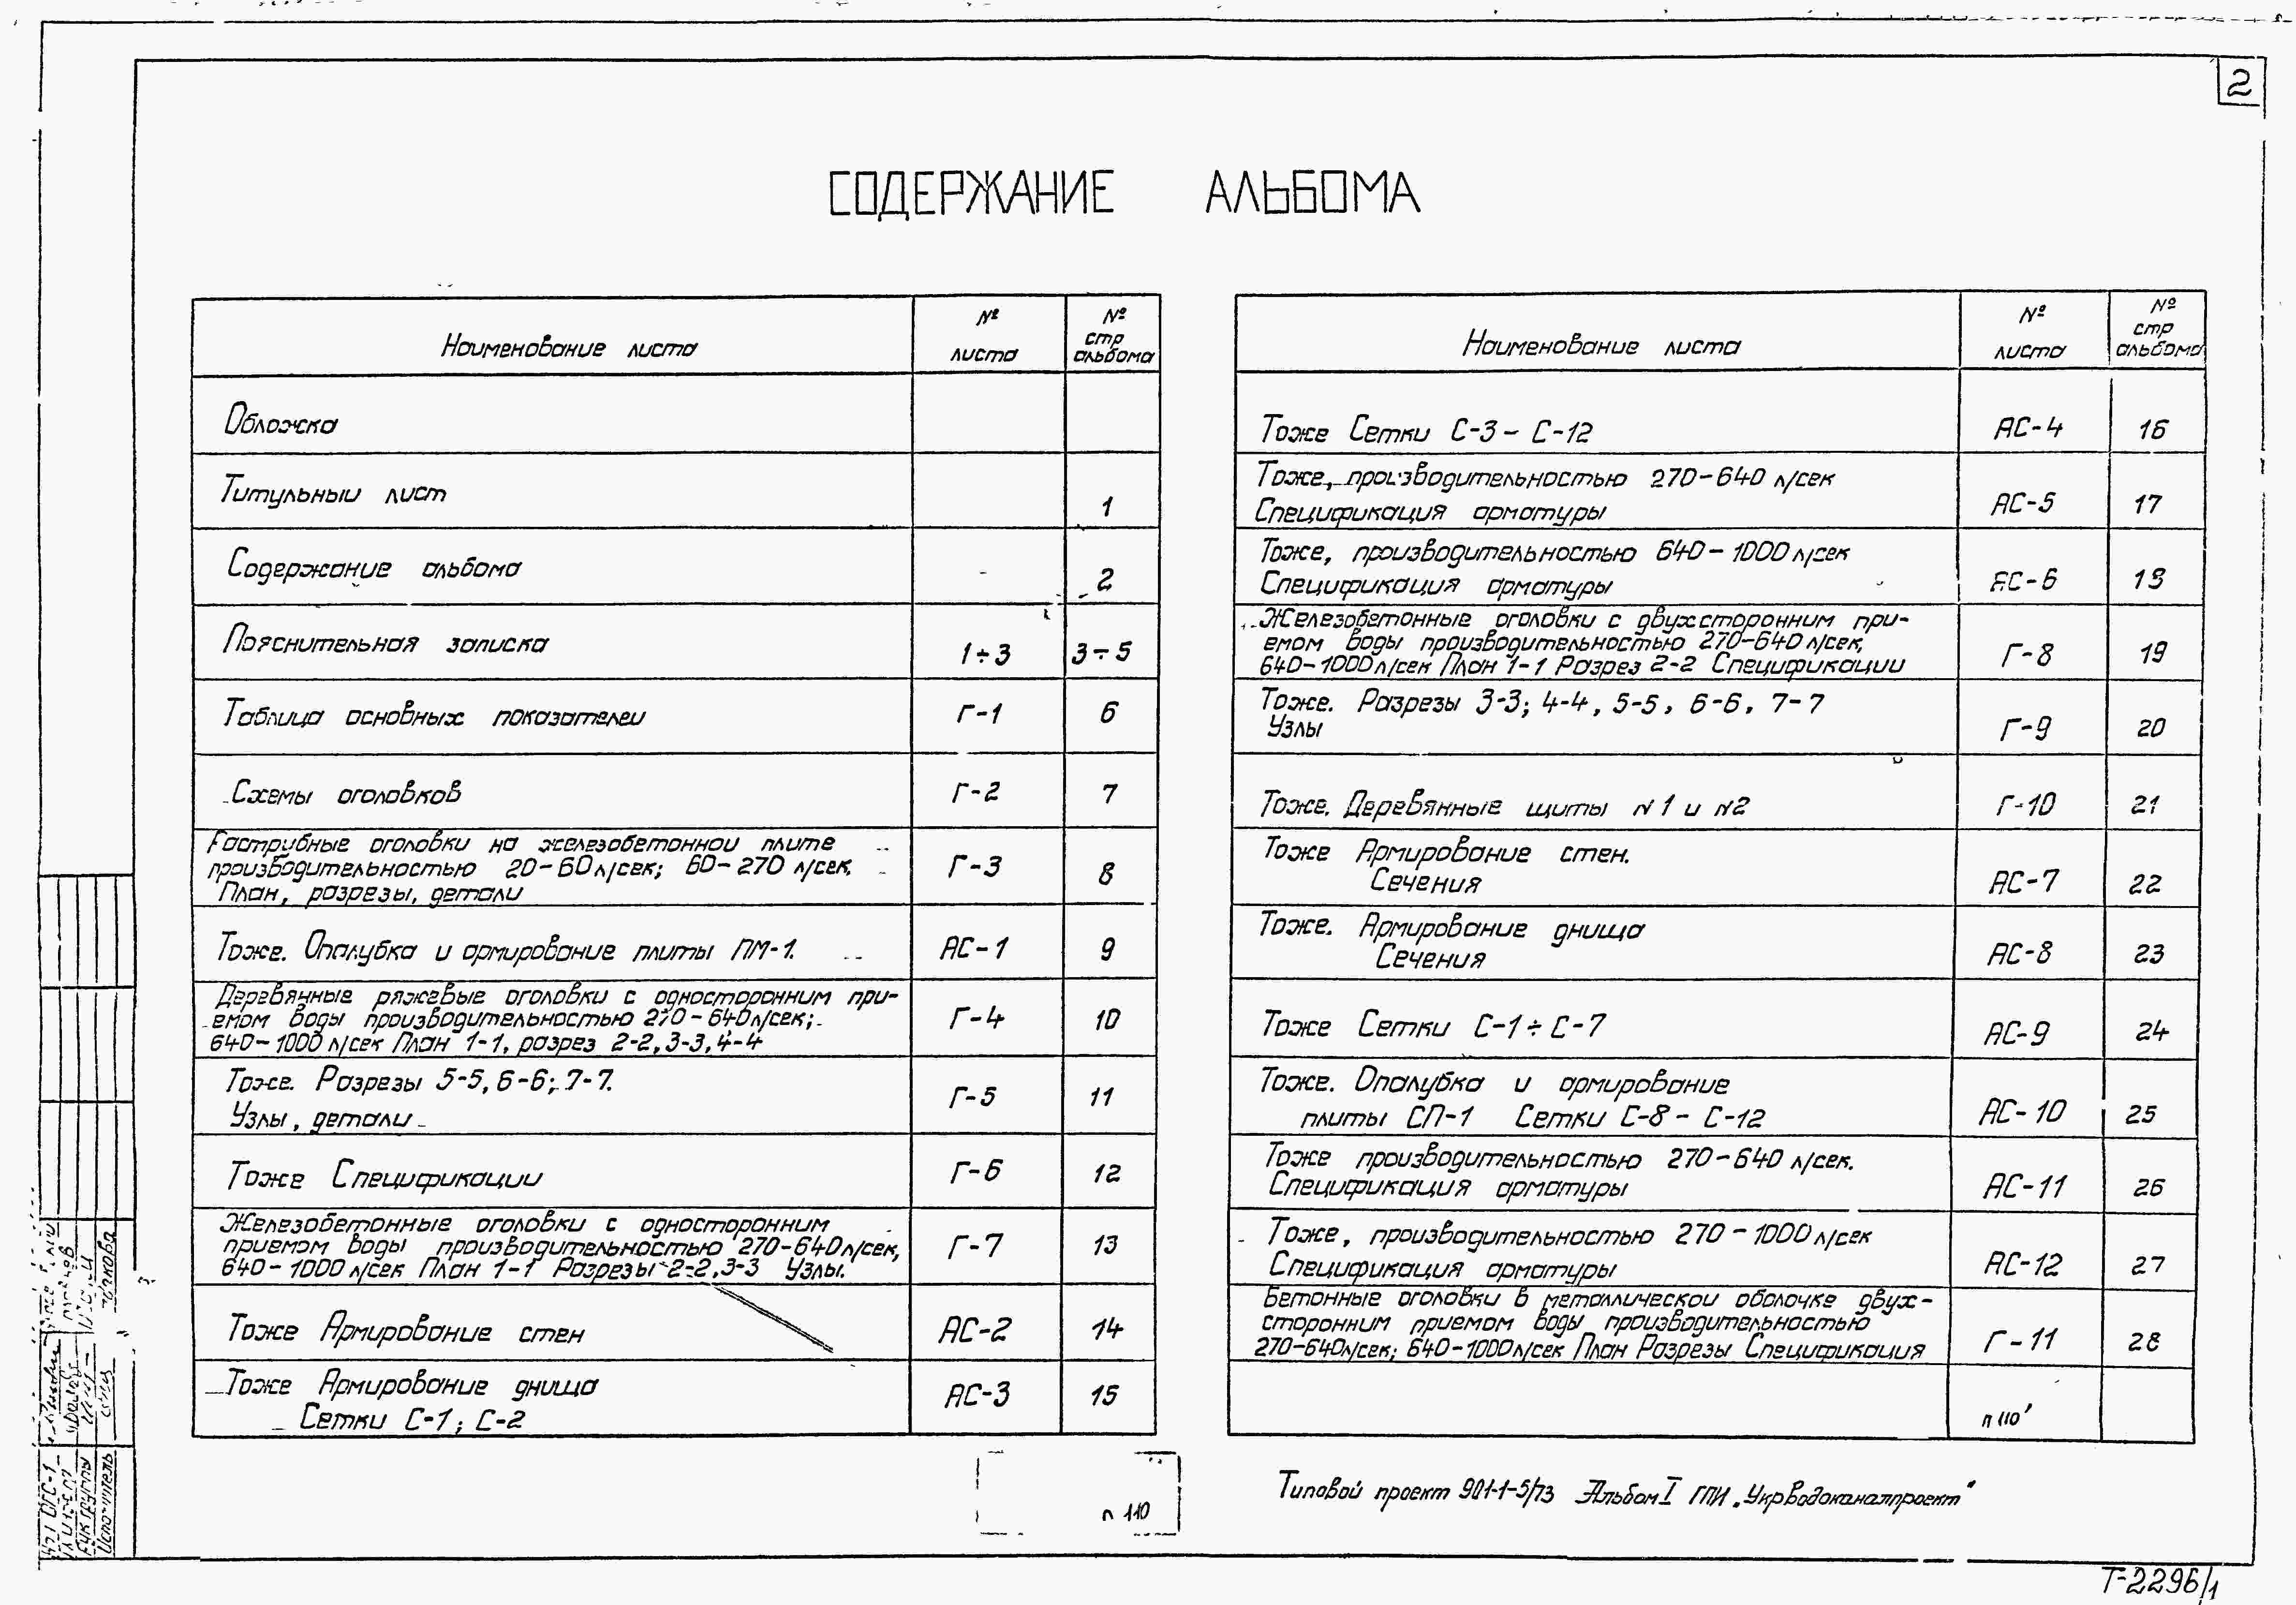 2
СОДЕРЖАНИЕ АЛЬБОМА
Наименование листа
№ листа
№ стр альбома
Обложка
Титульный лист 1
Содержание альбома - 2
Пояснительная записка 1÷3 3÷5
Таблица основных показателей Г-1 6
Схемы оголовков Г-2 7
Раструбные оголовки на железобетонной плите
производительностью 20-60 л/сек; 60-270 л/сек. Г-3 8
План, разрезы, детали
Тоже. Опалубка и армирование плиты ПМ-1. АС-1 9
Деревянные ряжевые оголовки с односторонним при-
емом воды производительностью 270-640 л/сек; Г-4 10
640-1000 л/сек План 1-1, разрез 2-2, 3-3, 4-4
Тоже. Разрезы 5-5, 6-6; 7-7.
Узлы, детали Г-5 11
Тоже Спецификации Г-6 12
Железобетонные оголовки с односторонним
приемом воды производительностью 270-640 л/сек, Г-7 13
640-1000 л/сек План 1-1 Разрезы 2-2, 3-3 Узлы.
Тоже Армирование стен АС-2 14
Тоже Армирование днища
Сетки С-1; С-2 АС-3 15
Наименование листа
№ листа
№ стр альбома
Тоже Сетки С-3 - С-12 АС-4 16
Тоже, производительностью 270-640 л/сек
Спецификация арматуры АС-5 17
Тоже, производительностью 640-1000 л/сек
Спецификация арматуры АС-6 18
Железобетонные оголовки с двухсторонним при-
емом воды производительностью 270-640 л/сек,
640-1000 л/сек План 1-1 Разрез 2-2 Спецификации Г-8 19
Тоже. Разрезы 3-3; 4-4, 5-5, 6-6, 7-7
Узлы Г-9 20
Тоже. Деревянные щиты №1 и №2 Г-10 21
Тоже Армирование стен.
Сечения АС-7 22
Тоже. Армирование днища
Сечения АС-8 23
Тоже Сетки С-1÷С-7 АС-9 24
Тоже. Опалубка и армирование
плиты СП-1 Сетки С-8 - С-12 АС-10 25
Тоже производительностью 270-640 л/сек.
Спецификация арматуры АС-11 26
Тоже, производительностью 270-1000 л/сек
Спецификация арматуры АС-12 27
Бетонные оголовки в металлической оболочке двух-
сторонним приемом воды производительностью
270-640 л/сек; 640-1000 л/сек План Разрезы Спецификация Г-11 28
п 110
п 110
Типовой проект 901-1-5/73 Альбом I ГПИ „Укрводоканалпроект"
Т-2296/1
Рук группы
Исполнитель